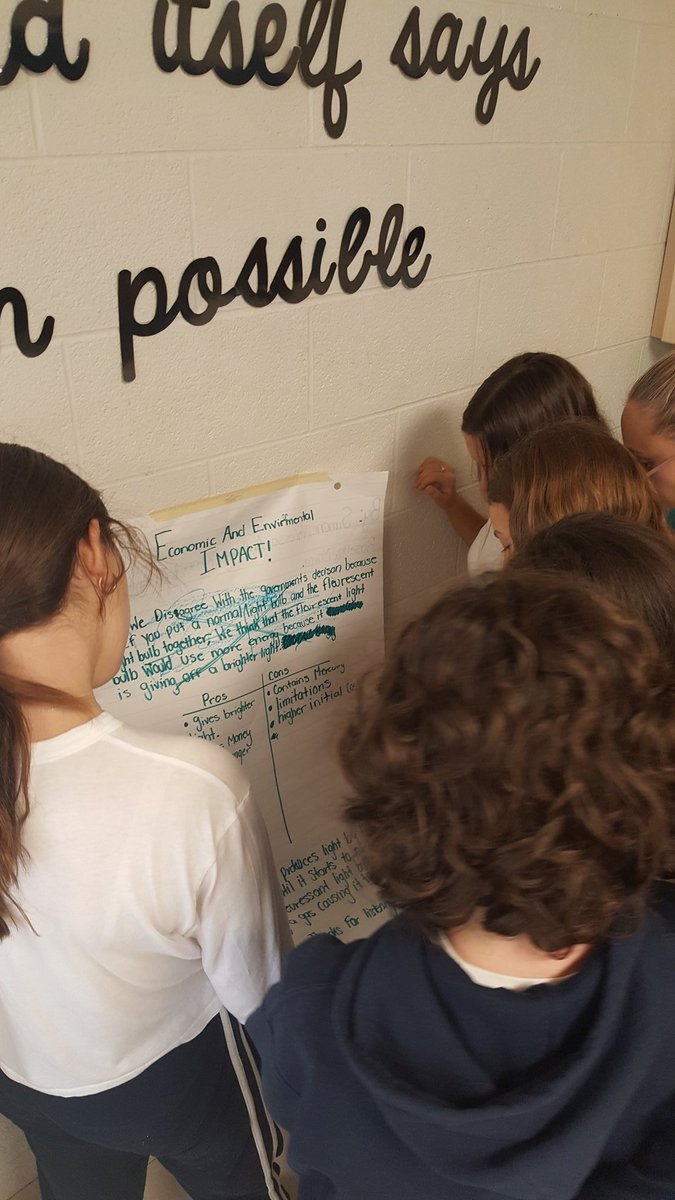 itself says
possible
Economic And Envirmental
IMPACT!
We Disagree With the government's decison because
if you put a normal light bulb and the flourescent
light bulb together. We think that the flourescent light
bulb Would use more energy because it
is giving off a brighter light
Pros
cons
• gives brighter
light.
Money
• Contains Mercury
• limitations
• higher initial
produces light by
it starts to
light
a gas causing it
for listening